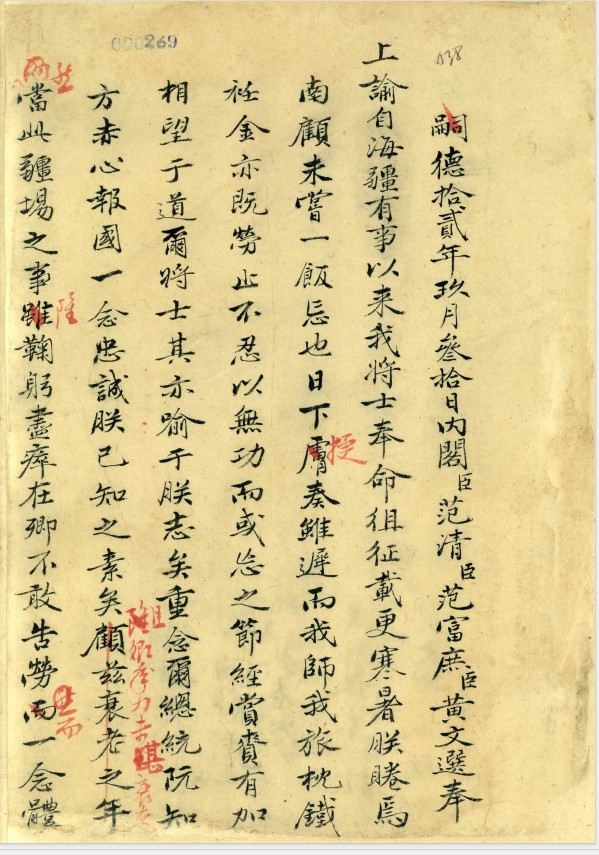 000269
038
嗣德拾貳年玖月叄拾日內閣臣范清臣范富庶臣黃文選奉
上諭自海疆有事以来我將士奉命徂征載更寒暑朕睠焉
南顧未嘗一飯忘也日下膚奏雖遲而我師我旅枕鐵
捷
衽金亦既勞止不忍以無功而或忘之節經賞賚有加
相望于道爾將士其亦喻于朕志矣重念爾總統阮知
方赤心報國一念忠誠朕已知之素矣顧茲衰老之年
當此疆場之事雖鞠躬盡瘁在卿不敢告勞而一念體